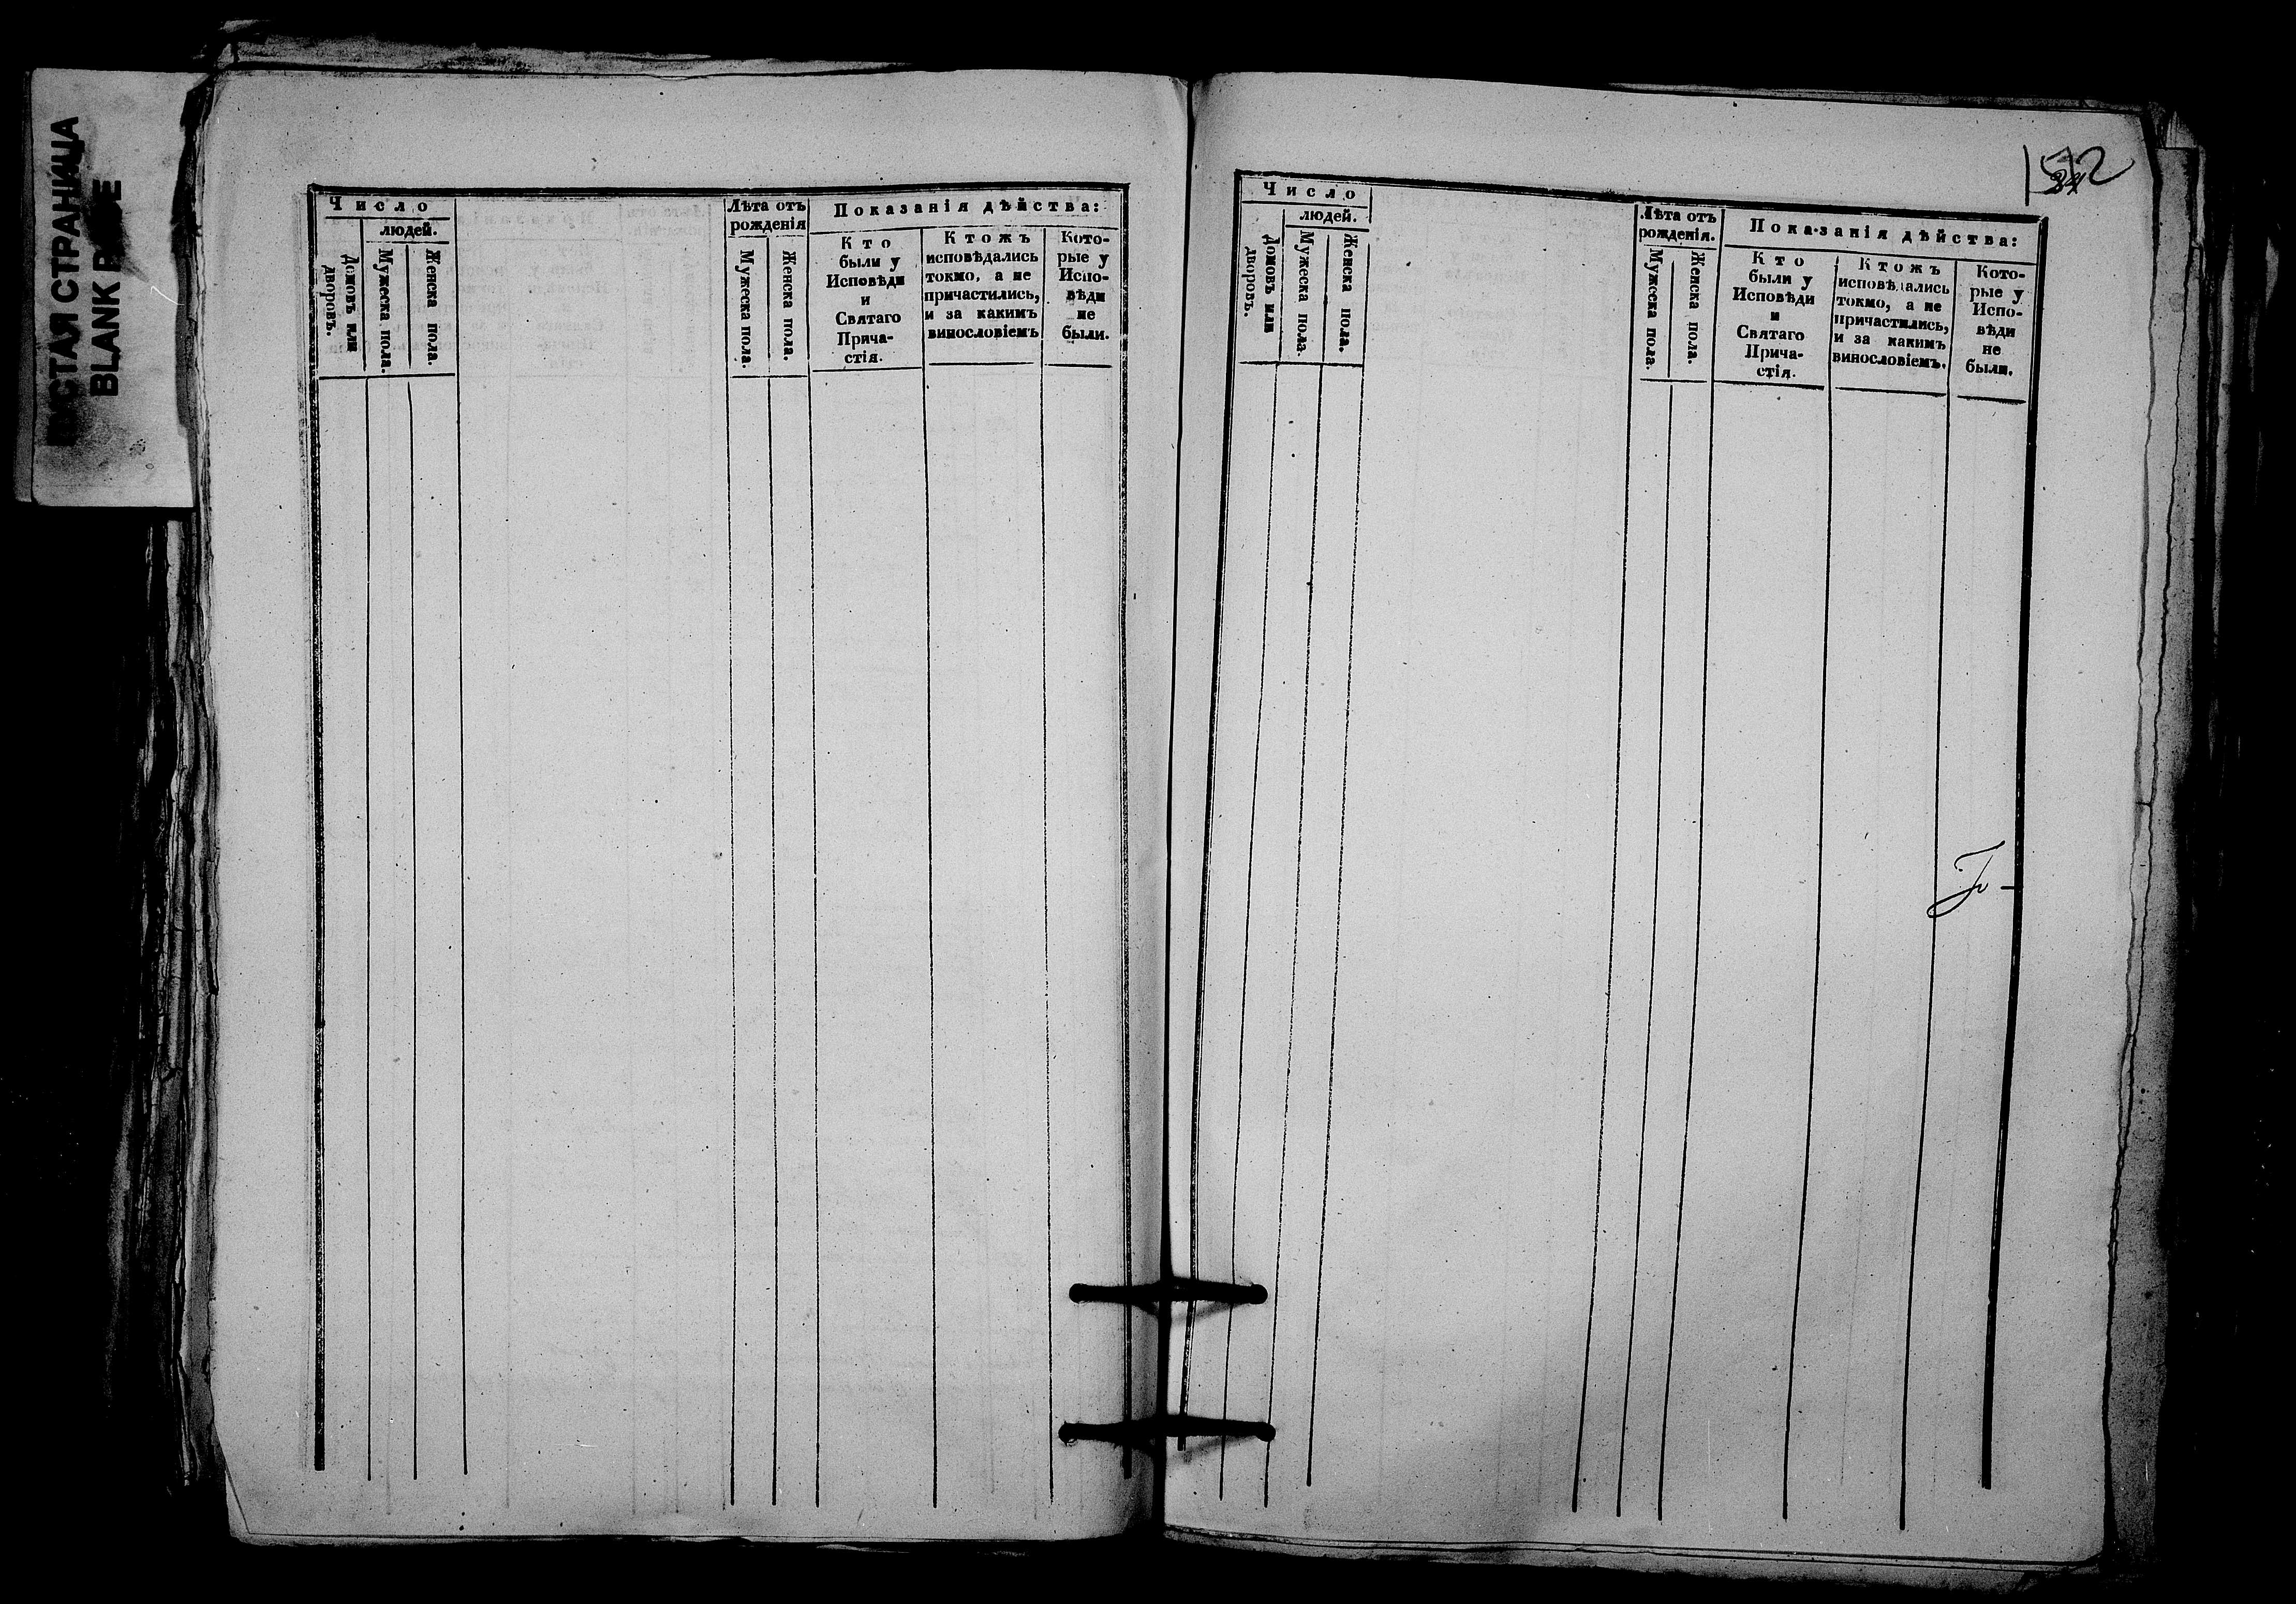 ЧИСТАЯ СТРАНИЦА
BLANK PAGE
Число
людей.
Домовъ или
дворовъ.
Мужеска пола.
Женска пола.
Лѣта отъ
рожденія
Мужеска пола.
Женска пола.
Показанія дѣйства:
Кто
были у
Исповѣди
и
Святаго
Прича-
стія.
Ктожъ
исповѣдались
токмо, а не
причастились,
и за какимъ
винословіемъ
Кото-
рые у
Испо-
вѣди
не
были.
Число
людей.
Домовъ или
дворовъ.
Мужеска пола.
Женска пола.
Лѣта отъ
рожденія.
Мужеска пола.
Женска пола.
Показанія дѣйства:
Кто
были у
Исповѣди
и
Святаго
Прича-
стія.
Ктожъ
исповѣдались
токмо, а не
причастились,
и за какимъ
винословіемъ.
Кото-
рые у
Испо-
вѣди
не
были.